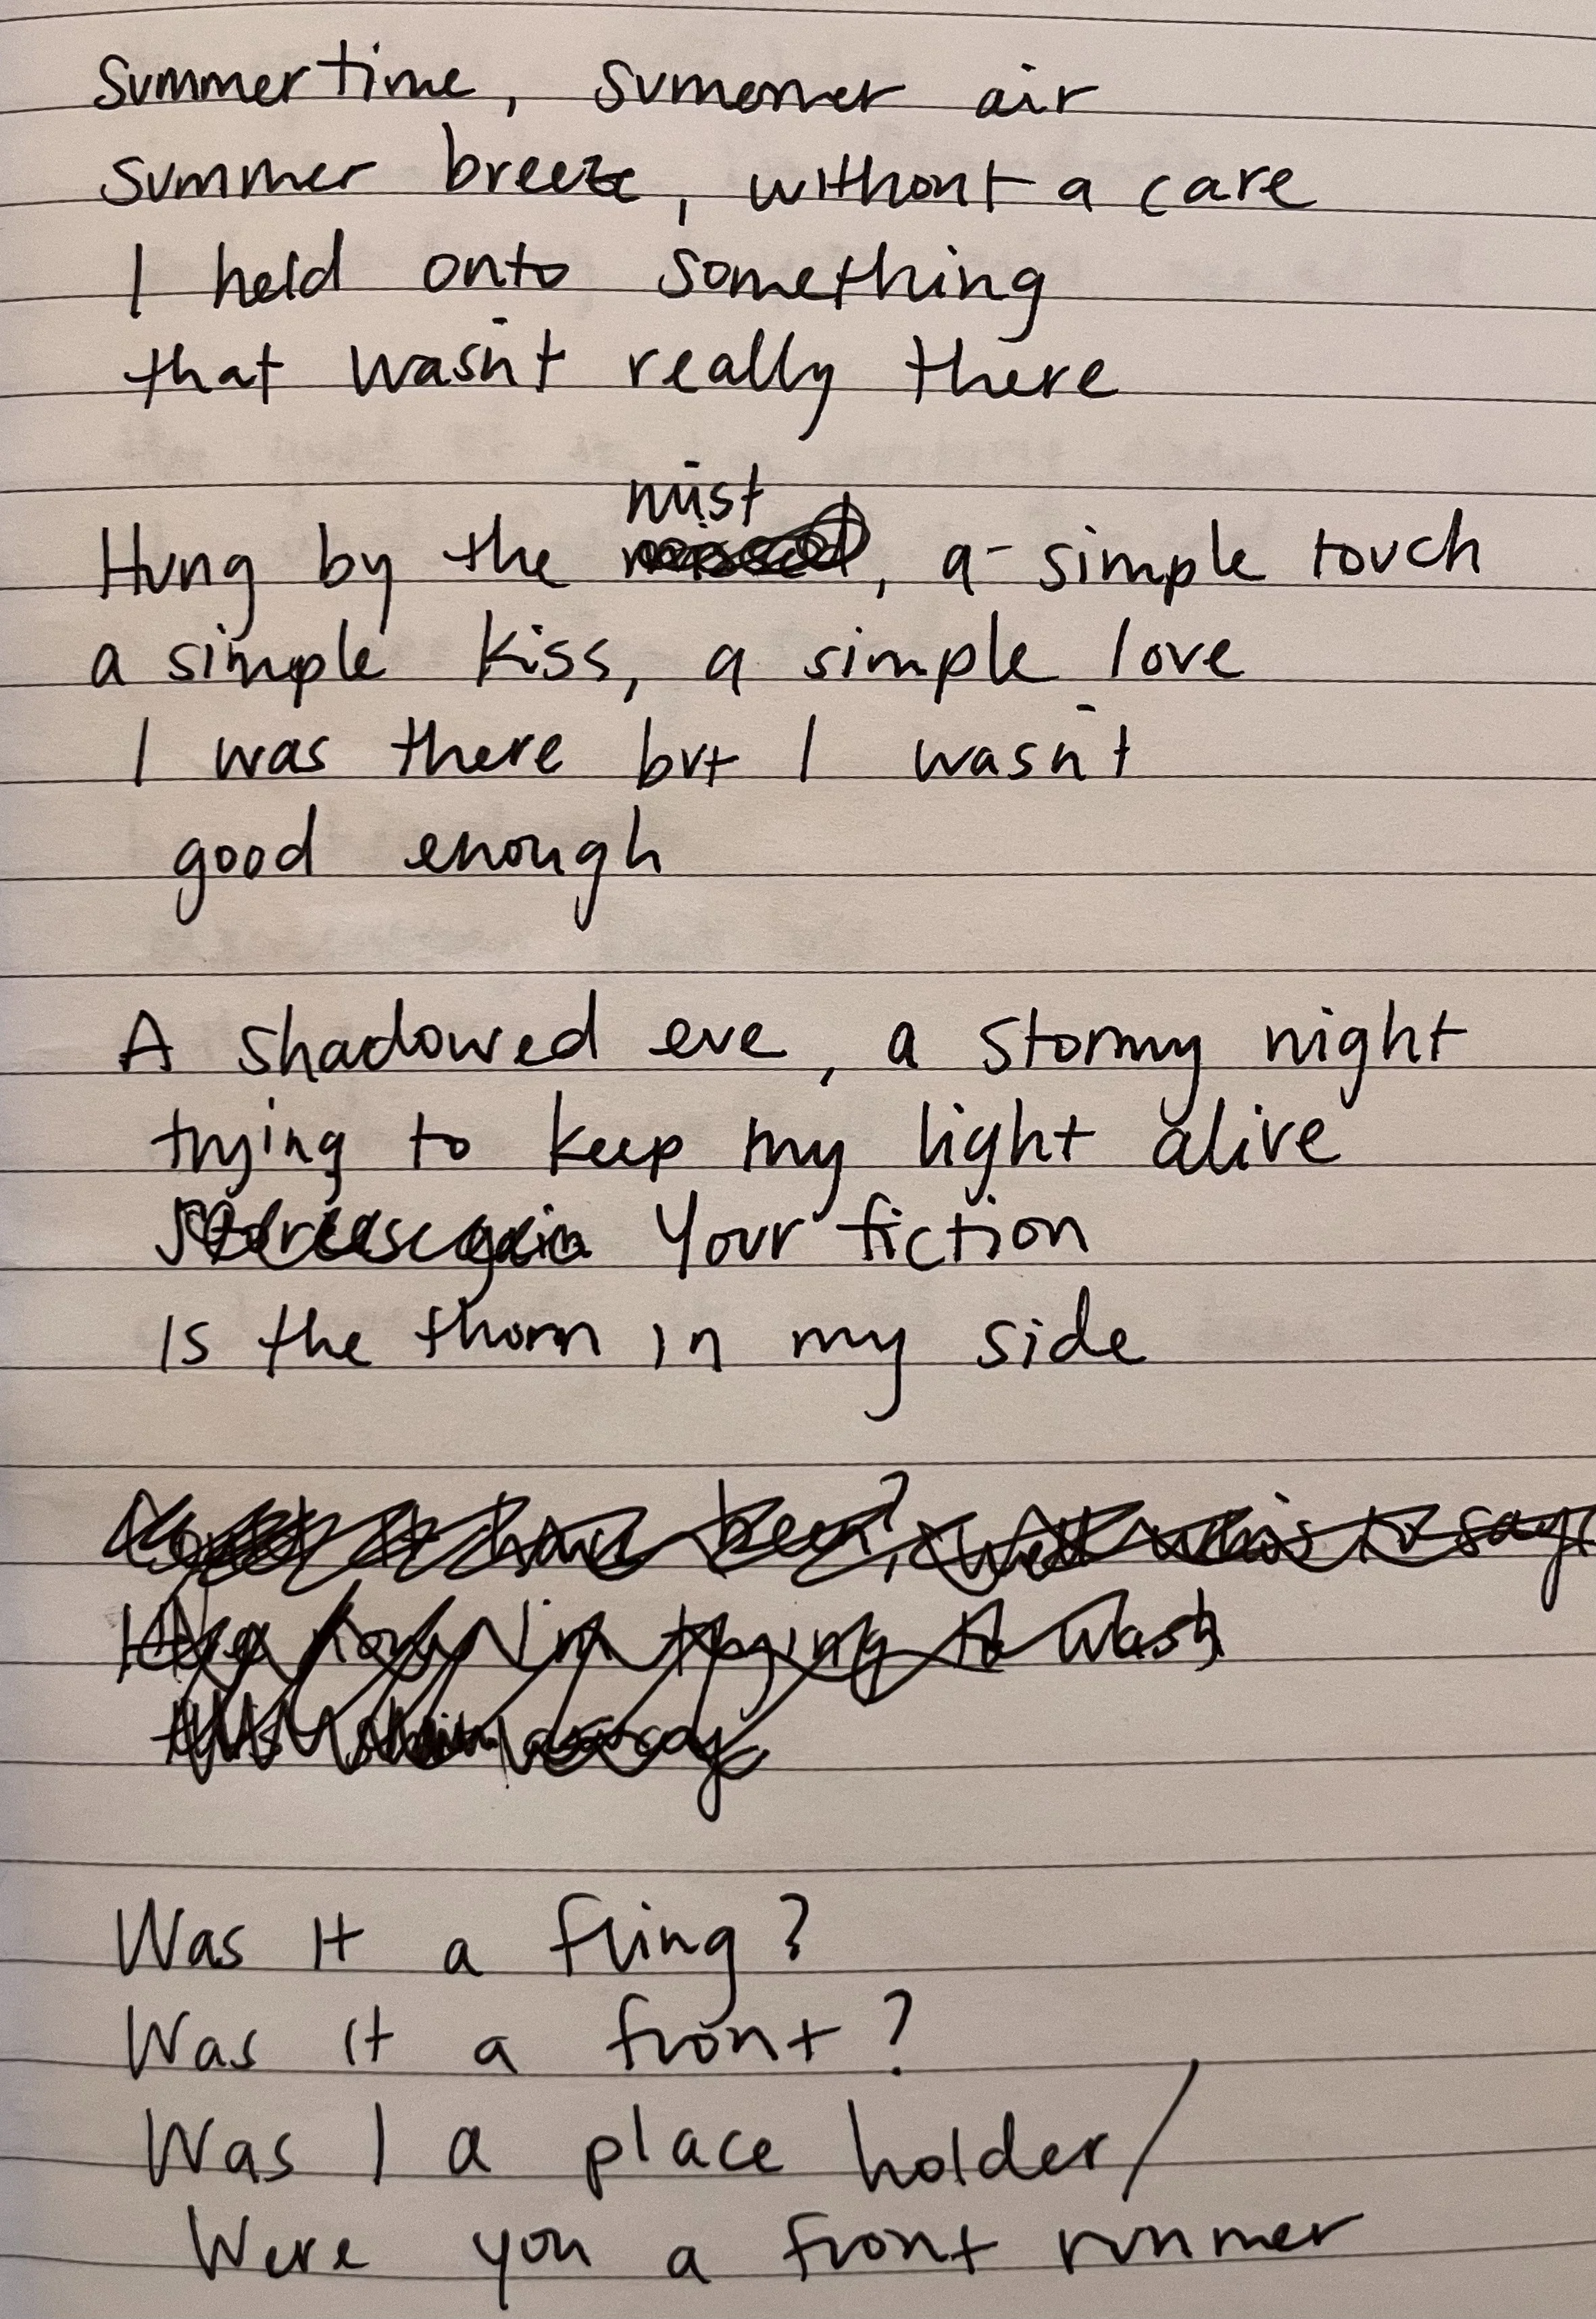 Summertime, summer air
summer breeze, without a care
I held onto something
that wasn't really there
mist
Hung by the , a simple touch
a simple kiss, a simple love
I was there but I wasn't
good enough
A shadowed eve, a stormy night
trying to keep my light alive
Your fiction
is the thorn in my side
it have been?, who's to say
now I'm trying to wash
this away
Was it a fling?
Was it a front?
Was I a place holder/
Were you a front runner